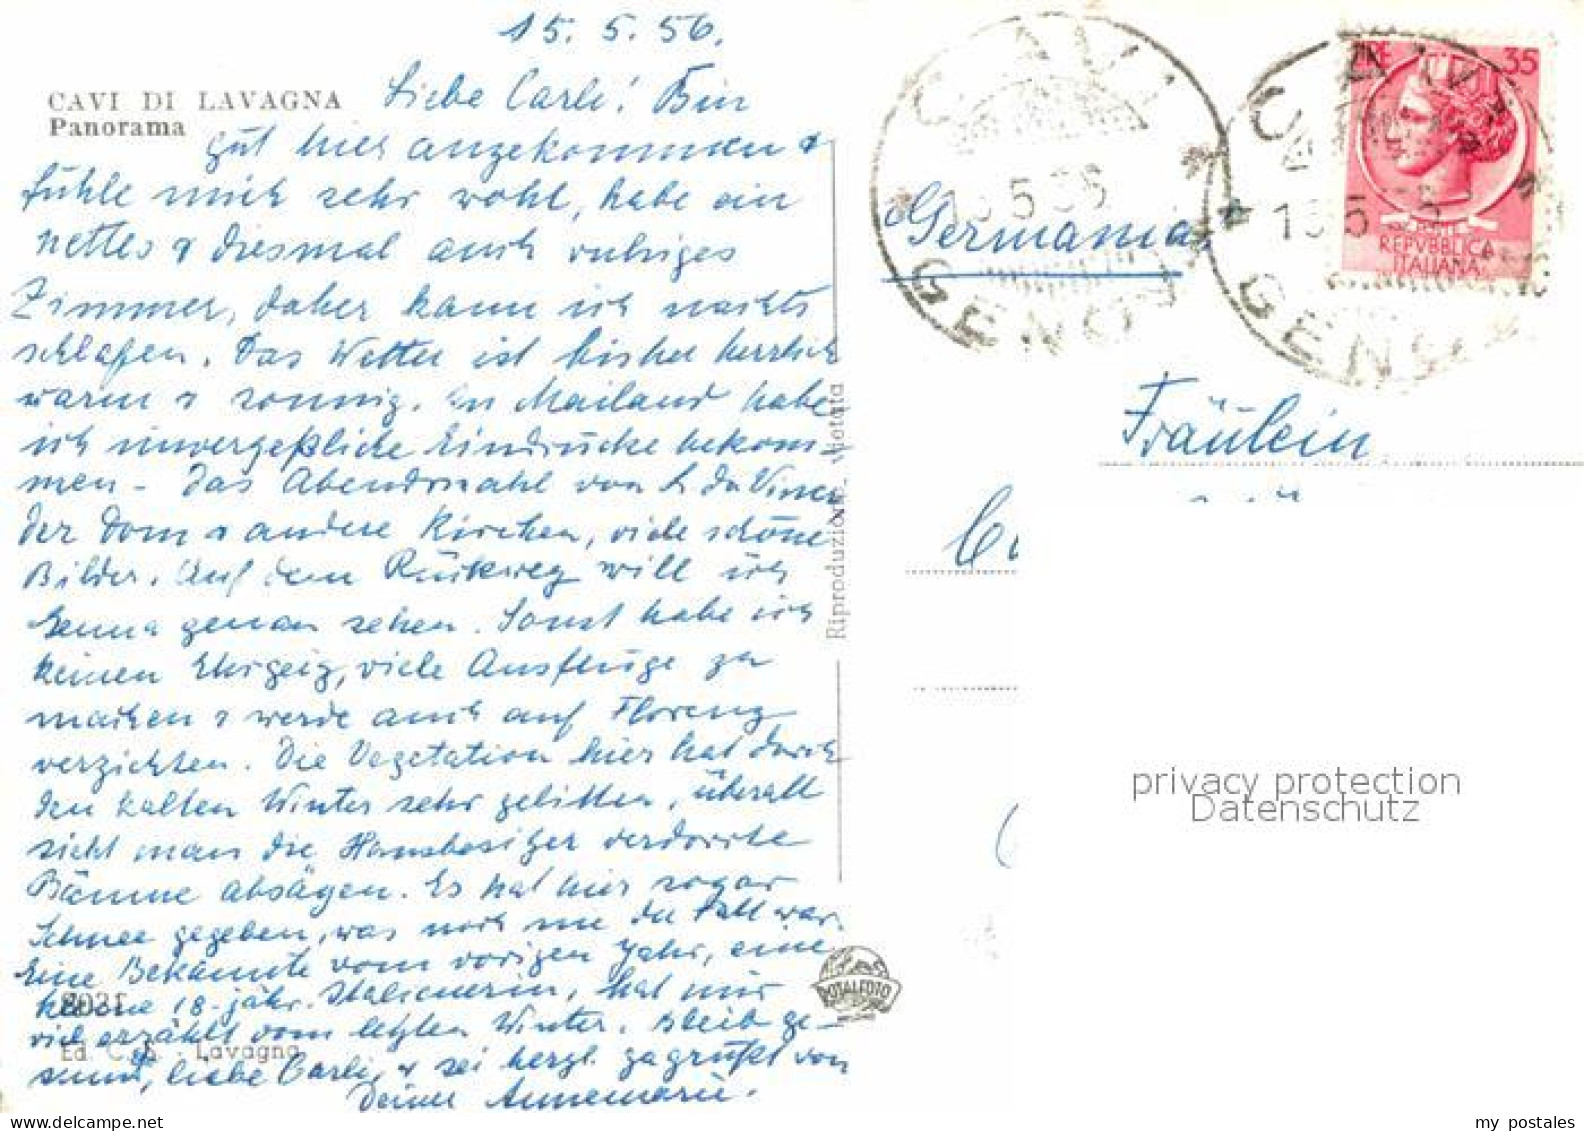 15. 5. 56.
CAVI DI LAVAGNA
Panorama
Liebe Carli! Bin
gut hier angekommen &
fühle mich sehr wohl, habe ein
nettes & diesmal auch ruhiges
Zimmer, daher kann ich nachts
schlafen. Das Wetter ist bisher herrlich
warm & sonnig. In Mailand habe
ich unvergeßliche Eindrücke bekom-
men - Das Abendmahl von L. da Vinci
der Dom & andere Kirchen, viele schöne
Bilder. Auf dem Rückweg will ich
Genua genau sehen. Sonst habe ich
keinen Ehrgeiz, viele Ausflüge zu
machen & werde auch auf Florenz
verzichten. Die Vegetation hier hat durch
den kalten Winter sehr gelitten, überall
sieht man die Hausbesitzer verdorrte
Bäume absägen. Es hat hier sogar
Schnee gegeben, was noch nie der Fall war.
Eine Bekannte vom vorigen Jahr, eine
kleine 18-jähr. Italienerin, hat mir
viel erzählt vom letzten Winter. Bleib ge-
sund, liebe Carli, & sei herzl. gegrüßt von
Deiner Annemarie.
8031
Ed. C. - Lavagna
Riproduzione vietata
FOTALFOTO
CAVI
15 5 56
GENO
Germania
CAVI
15 5 56
GENO
LIRE 35
REPVBBLICA
ITALIANA
Fräulein
privacy protection
Datenschutz
my postales